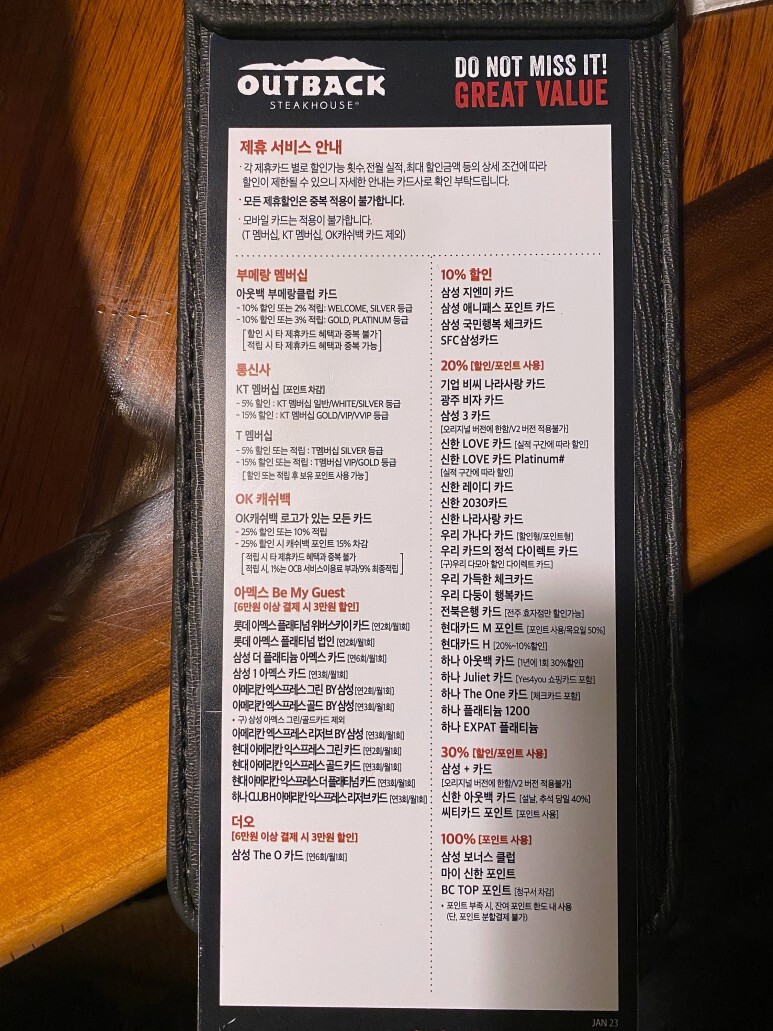 OUTBACK
STEAKHOUSE®
DO NOT MISS IT!
GREAT VALUE
제휴 서비스 안내
· 각 제휴카드 별로 할인가능 횟수,전월 실적,최대 할인금액 등의 상세 조건에 따라
할인이 제한될 수 있으니 자세한 안내는 카드사로 확인 부탁드립니다.
· 모든 제휴할인은 중복 적용이 불가합니다.
· 모바일 카드는 적용이 불가합니다.
(T 멤버십, KT 멤버십, OK캐쉬백 카드 제외)
부메랑 멤버십
아웃백 부메랑클럽 카드
- 10% 할인 또는 2% 적립: WELCOME, SILVER 등급
- 10% 할인 또는 3% 적립: GOLD, PLATINUM 등급
[할인 시 타 제휴카드 혜택과 중복 불가]
[적립 시 타 제휴카드 혜택과 중복 가능]
통신사
KT 멤버십 [포인트 차감]
- 5% 할인 : KT 멤버십 일반/WHITE/SILVER 등급
- 15% 할인 : KT 멤버십 GOLD/VIP/VVIP 등급
T 멤버십
- 5% 할인 또는 적립 : T멤버십 SILVER 등급
- 15% 할인 또는 적립 : T멤버십 VIP/GOLD 등급
[할인 또는 적립 후 보유 포인트 사용 가능]
OK 캐쉬백
OK캐쉬백 로고가 있는 모든 카드
- 25% 할인 또는 10% 적립
- 25% 할인 시 캐쉬백 포인트 15% 차감
[적립 시 타 제휴카드 혜택과 중복 불가
적립 시, 1%는 OCB 서비스이용료 부과/9% 최종적립]
아멕스 Be My Guest
[6만원 이상 결제 시 3만원 할인]
롯데 아멕스 플래티넘 위버스카이 카드 [연2회/월1회]
롯데 아멕스 플래티넘 법인 [연2회/월1회]
삼성 더 플래티늄 아멕스 카드 [연6회/월1회]
삼성 1 아멕스 카드 [연3회/월1회]
아메리칸 엑스프레스 그린 BY 삼성 [연2회/월1회]
아메리칸 엑스프레스 골드 BY 삼성 [연3회/월1회]
• 구) 삼성 아멕스 그린/골드카드 제외
아메리칸 엑스프레스 리저브 BY 삼성 [연3회/월1회]
현대 아메리칸 익스프레스 그린 카드 [연2회/월1회]
현대 아메리칸 익스프레스 골드 카드 [연3회/월1회]
현대 아메리칸 익스프레스 더 플래티넘 카드 [연3회/월1회]
하나 CLUB H 아메리칸 익스프레스 리저브 카드 [연3회/월1회]
더오
[6만원 이상 결제 시 3만원 할인]
삼성 The O 카드 [연6회/월1회]
10% 할인
삼성 지엔미 카드
삼성 애니패스 포인트 카드
삼성 국민행복 체크카드
SFC 삼성카드
20% [할인/포인트 사용]
기업 비씨 나라사랑 카드
광주 비자 카드
삼성 3 카드
[오리지널 버전에 한함/V2 버전 적용불가]
신한 LOVE 카드 [실적 구간에 따라 할인]
신한 LOVE 카드 Platinum#
[실적 구간에 따라 할인]
신한 레이디 카드
신한 2030카드
신한 나라사랑 카드
우리 가나다 카드 [할인형/포인트형]
우리 카드의 정석 다이렉트 카드
[구)우리 다모아 할인 다이렉트 카드]
우리 가득한 체크카드
우리 다둥이 행복카드
전북은행 카드 [전주 효자점만 할인가능]
현대카드 M 포인트 [포인트 사용/목요일 50%]
현대카드 H [20%~10%할인]
하나 아웃백 카드 [1년에 1회 30%할인]
하나 Juliet 카드 [Yes4you 쇼핑카드 포함]
하나 The One 카드 [체크카드 포함]
하나 플래티늄 1200
하나 EXPAT 플래티늄
30% [할인/포인트 사용]
삼성 + 카드
[오리지널 버전에 한함/V2 버전 적용불가]
신한 아웃백 카드 [설날, 추석 당일 40%]
씨티카드 포인트 [포인트 사용]
100% [포인트 사용]
삼성 보너스 클럽
마이 신한 포인트
BC TOP 포인트 [청구서 차감]
• 포인트 부족 시, 잔여 포인트 한도 내 사용
(단, 포인트 분할결제 불가)
JAN 23